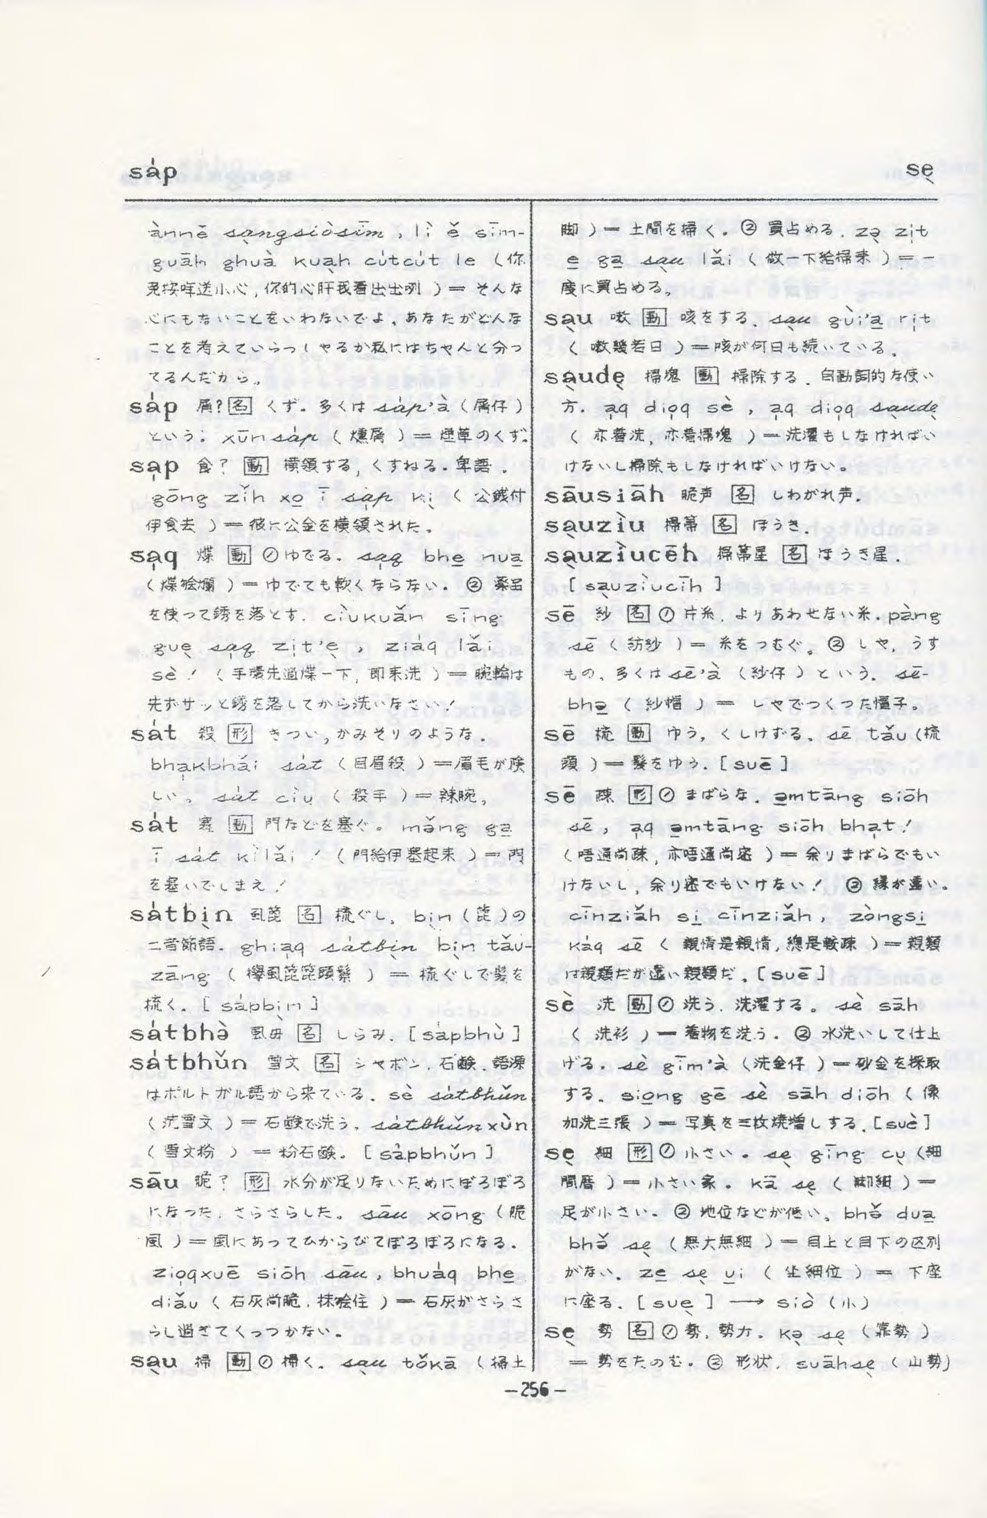 sa̍p
sẹ
ànnē sạngsiòsīm, lì ě sīm-
guāh ghuà kuạh cútcút le (你
免按呀送小心, 你的心肝我看出出咧) = そんな
心にもないことをいわないでよ, あなたがどんな
ことを考えていらっしゃるか私にはちゃんと分っ
てるんだから。
sáp 屑? 名 くず。多くは sáp'à (屑仔)
という。xūn sáp (燻屑) = 煙草のくず。
sạp 食? 動 横領する, くすねる。卑語.
gōng zǐh xọ ī sáp kị (公銭付
伊食去) = 彼に公金を横領された。
sạq 煠 動 ① ゆでる. sạq bhe nua
(煠𣍐爛) = ゆでても軟くならない。② 薬品
を使って銹を落とす. cìukuǎn sīng
guẹ sạq zịt'ẹ, ziáq lǎi
sè! (手環先過煠一下, 即来洗) = 腕輪は
先ずサッと銹を落してから洗いなさい!
sát 殺 形 きつい, かみそりのような.
bhạkbhǎi sát (目眉殺) = 眉毛が険
しい。sát ciụ (殺手) = 辣腕。
sát 塞 動 門などを塞ぐ。mǎng ga
ī sát kìlǎi! (門給伊塞起来) = 門
を塞いでしまえ!
sátbịn 虱篦 名 梳ぐし. bịn (篦)の
二音節語. ghiạq sátbịn bịn tǎu-
zāng (攑虱篦篦頭鬃) = 梳ぐしで髪を
梳く. [sápbịn]
sátbhə̀ 虱母 名 しらみ. [sápbhù]
sátbhǔn 雪文 名 シャボン. 石鹸. 語源
はポルトガル語から来ている. sè sátbhǔn
(洗雪文) = 石鹸で洗う. sátbhǔnxùn
(雪文粉) = 粉石鹸. [sápbhǔn]
sāu 脆? 形 水分が足りないためにぼろぼろ
になった. さらさらした。sāu xōng (脆
風) = 風にあってひからびてぼろぼろになる.
ziọqxuē siōh sāu, bhuáq bhe
diǎu (石灰尚脆, 抹𣍐住) = 石灰がさらさ
らし過ぎてくっつかない。
sạu 掃 動 ① 掃く. sạu tǒkā (掃土
脚) = 土間を掃く. ② 買占める. zə zịt
e ga sạu lǎi (做一下給掃来) = 一
度に買占める。
sạu 嗽 動 咳をする. sạu gùi'a rịt
(嗽幾若日) = 咳が何日も続いている.
sạudẹ 掃塊 動 掃除する. 自動詞的な使い
方. ạq diọq sè, ạq diọq sạudẹ
(亦着洗, 亦着掃塊) = 洗濯もしなければい
けないし掃除もしなければいけない。
sāusiāh 脆声 名 しわがれ声.
sạuzìu 掃帚 名 ほうき.
sạuzìucēh 掃帚星 名 ほうき星.
[sạuzìucīh]
sē 紗 名 ① 片糸. よりあわせない糸. pàng
sē (紡紗) = 糸をつむぐ. ② しや. うす
もの. 多くは sē'à (紗仔) という. sē-
bhə (紗帽) = しやでつくった帽子。
sē 梳 動 ゆう, くしけずる. sē tǎu (梳
頭) = 髪をゆう. [suē]
sē 疎 形 ① まばらな. əmtāng siōh
sē, ạq əmtāng siōh bhạt!
(唔通尚疎, 亦唔通尚密) = 余りまばらでもい
けないし, 余り密でもいけない! ② 縁が遠い.
cīnziǎh si cīnziǎh, zòngsi
káq sē (親情是親情, 總是較疎) = 親類
は親類だが遠い親類だ. [suē]
sè 洗 動 ① 洗う. 洗濯する。sè sāh
(洗衫) = 着物を洗う. ② 水洗いして仕上
げる. sè gīm'à (洗金仔) = 砂金を採取
する. siọng gē sè sāh diōh (像
加洗三張) = 写真を三枚焼増しする. [suè]
sẹ 細 形 ① 小さい。sẹ gīng cụ (細
間厝) = 小さい家. kā sẹ (脚細) =
足が小さい. ② 地位などが低い. bhə̌ dua
bhə̌ sẹ (無大無細) = 目上と目下の区別
がない. zẹ sẹ ui (坐細位) = 下座
に座る. [suẹ] → siò (小)
sẹ 勢 名 ① 勢. 勢力. kə sẹ (靠勢)
= 勢をたのむ. ② 形状. suāhsẹ (山勢)
—256—